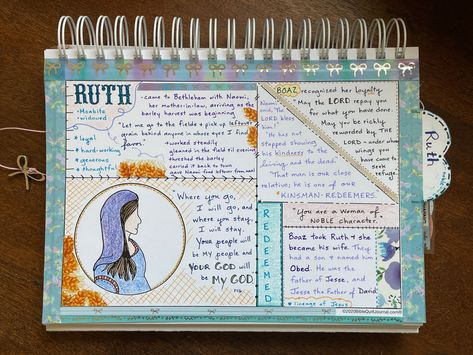 RUTH
•Moabite
•widowed
•loyal
•hard-working
•generous
•thoughtful
-came to Bethlehem with Naomi,
her mother-in-law, arriving as the
barley harvest was beginning
Let me go to the fields + pick up leftover
grain behind anyone in whose eyes I find
favor."
•worked steadily
gleaned in the field til evening
threshed the barley
carried it back to town
gave Naomi food leftover from meal
"Where you go,
I will go, and
where you stay,
I will stay.
Your people will
be my people and
YOUR GOD will
be MY GOD.
BOAZ recognized her loyalty
"May the LORD repay you
for what you have done.
May you be richly
rewarded by THE
LORD - under whose
wings you
have come to
seek
refuge."
Naomi
"The
LORD bless
him!"
"He has not
stopped showing
his kindness to the
living, and the dead."
"That man is our close
relative; he is one of our
KINSMAN-REDEEMERS.
REDEEMED
"You are a woman of
NOBLE character.
Boaz took Ruth + she
became his wife. They
had a son + named him
Obed. He was the
father of Jesse, and
Jesse the Father of David.
•lineage of Jesus
©2020BibleQuiltJournal.com®
Ruth